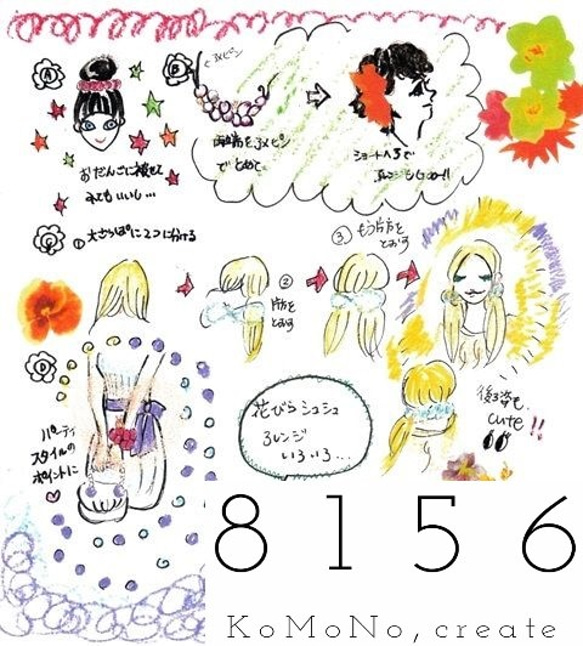 A
おだんごに被せて
みてもいいし…
B
アメピン
両端をアメピン
でとめて
ショートヘアで
アレンジもGoo!!
C
① 大さっぱに2つに分ける
② 片方を
とおす
③ もう片方を
とおす
後ろ姿も
cute!!
D
パーティ
スタイルの
ポイントに
花びらシュシュ
アレンジ
いろいろ…
8156
KoMoNo, create